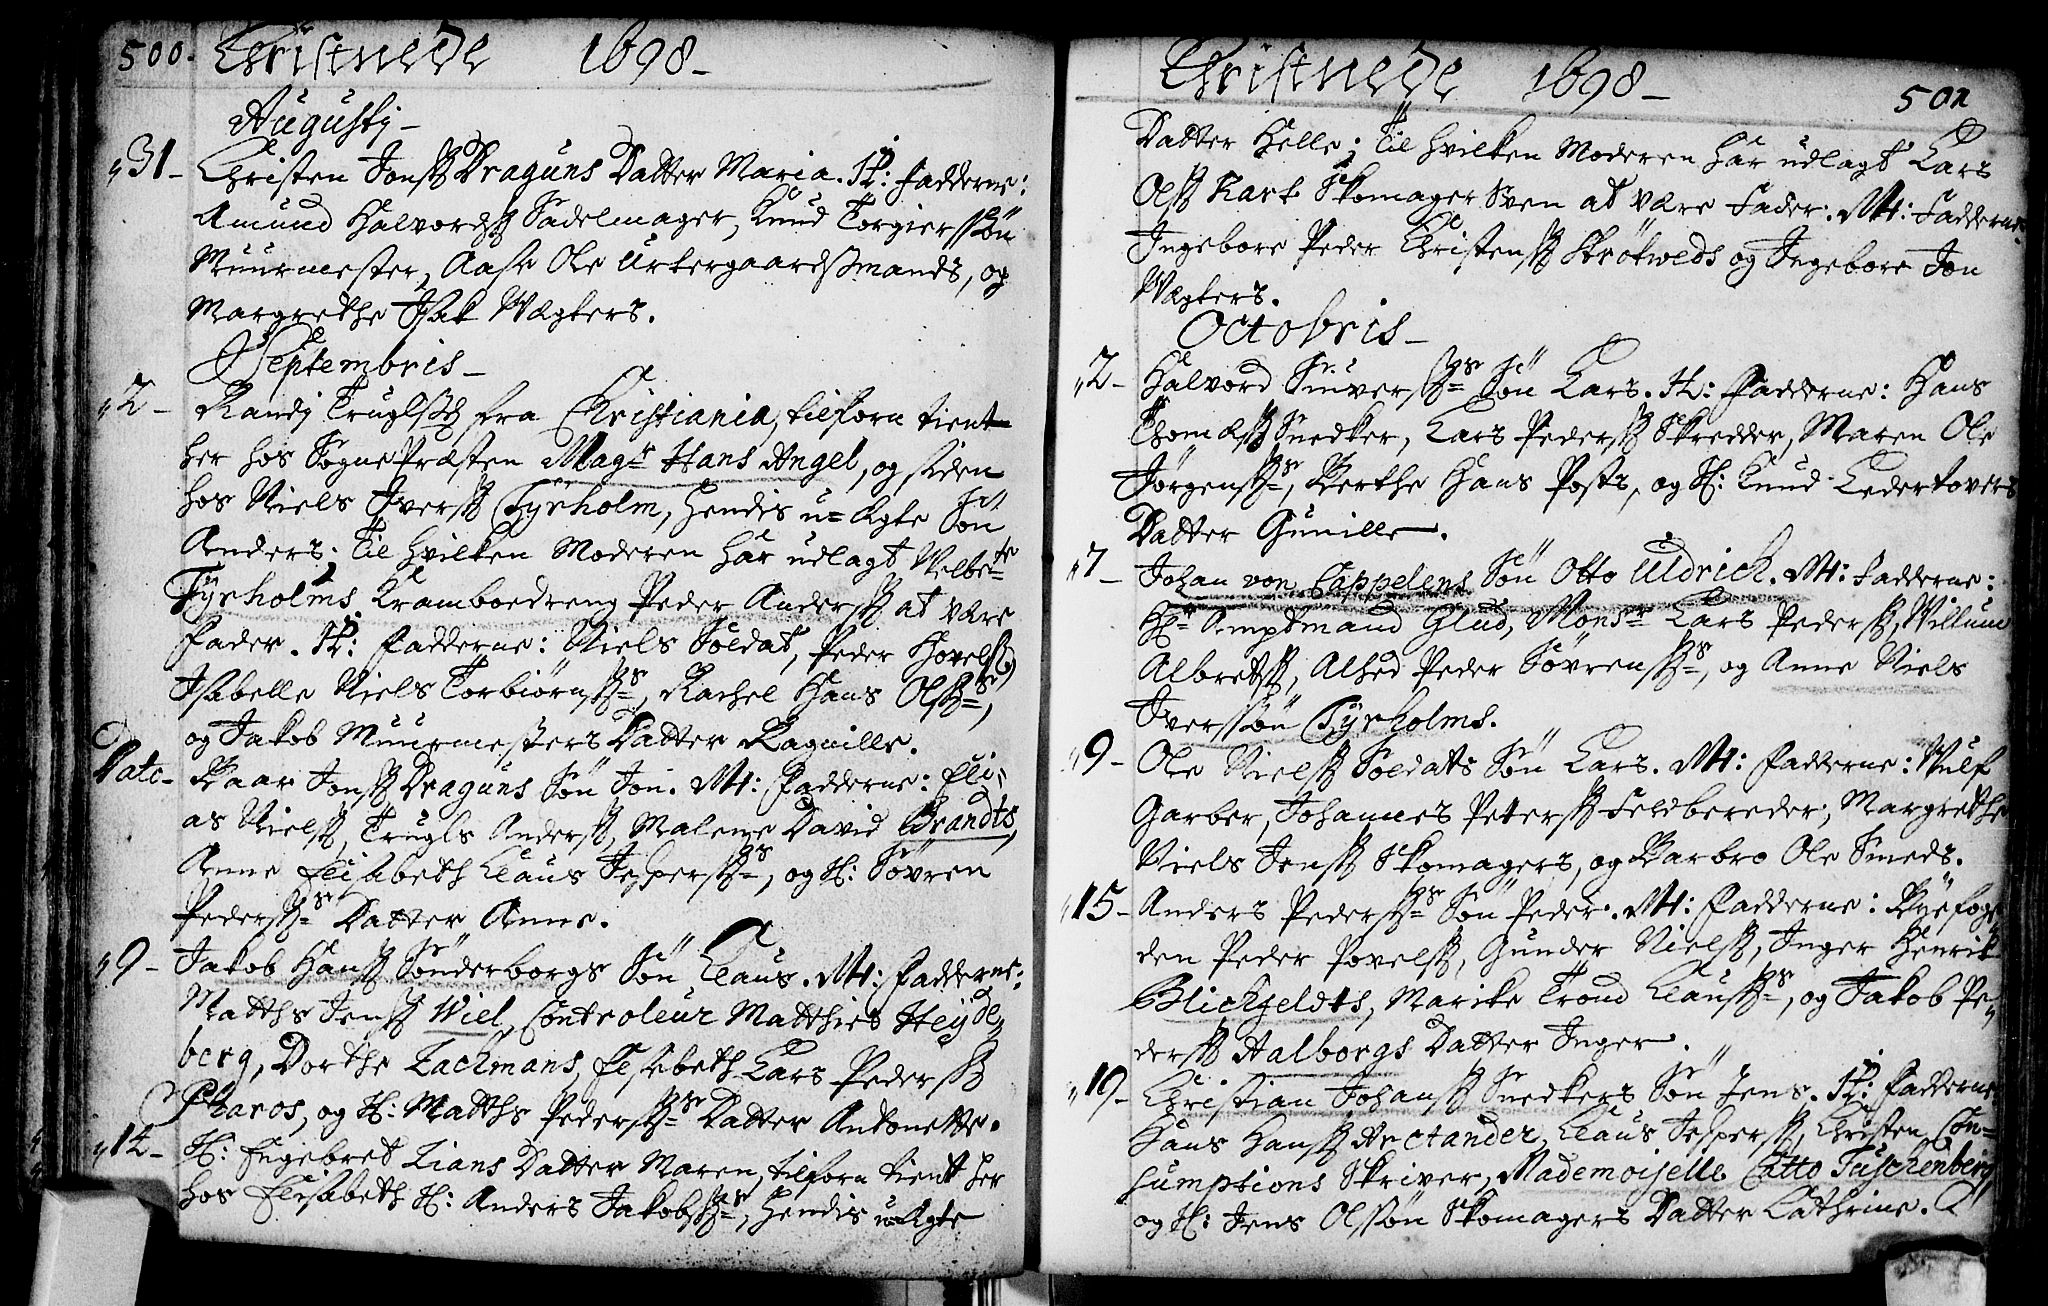 500. Christnede 1698 -
Augustj -
31 - Christen Jonss Draguns Datter Maria. H: Fadderne:
Amund Halvordss Sadelmager, Knud Torgierssøn
Muurmester, Aase Ole Urtergaardssmands, og
Margrethe Isak Vægters.
Septembris -
2 - Randj Truglsd fra Christiania, tilforn tient
her hos Sogne Præsten Magr Hans Angel, og siden
hos Niels Iverss Tyrholm, hendis u=Ægte Søn
Anders. Til hvilken Moderen har udlagt Velbete
Tyrholms Kramboedreng Peder Anderss at være
Fader. H: Fadderne: Niels Soldat, Peder Hovelss,
Isabelle Niels Torbiørnss, Rachel Hans Olss,
og Jakob Muurmesters Datter Ragnille.
Dato - Baar Jonss Draguns Søn Jon. M: Fadderne: Eli=
as Nielss, Trugls Anderss, Malene David Brandts,
Anne Elisabeth Claus Jesperss, og H: Søvren
Pederss Datter Anne.
9 - Jakob Hanss Sønderborgs Søn Claus. M: Fadderne:
Matths Jenss Wiel, Controleur Matthies Heyde,
berg, Dorthe Zachmans, Elsebeth Lars Pederss
Pharos, og H: Matths Pederss Datter Antonette.
14 - H: Engebret Lians Datter Maren, tilforn tient her
hos Elisabeth H: Anders Jakobss, hendis u-Ægte
Christnede 1698 - 501
Datter Helle; Til hvilken Moderen har udlagt Lars
Olss Rark Skomager Sven at være Fader. M: Fadderne
Ingebore Peder Christenss Skrøtveds og Ingebore Jon
Vægters.
Octobris -
2 - Halvord Siuverss Søn Lars. H: Fadderne: Hans
Thomæss Snedker, Lars Pederss Skredder, Maren Ole
Jørgenss, Berthe Hans Posts, og H: Knud Ledertovers
Datter Gunille.
7 - Johan von Cappelens Søn Otto Uldrich. M: Fadderne:
Hr Amptmand Glud, Monsr Lars Pederss, Willum
Albretss, Alhed Peder Søvrenss, og Anne Niels
Iverssøn Tyrholms.
9 - Ole Nielss Soldats Søn Lars. M: Fadderne: Wulf
Garber, Johannes Peterss Feldbereder, Margrethe
Niels Jenss Skomagers, og Barbro Ole Smeds.
15 - Anders Pederss Søn Peder. M: Fadderne: Byefoge
den Peder Povelss, Gunder Nielss, Inger Henrik
Blichfeldts, Marike Trond Clauss, og Jakob Pe=
derss Aalborgs Datter Inger.
19 - Christian Johanss Snedkers Søn Jens. H: Fadderne
Hans Hanss Arctander, Claus Jesperss, Christen Con=
sumptions Skriver, Mademoiselle Catto Tuschenberg,
og H: Jens Olssøn Skomagers Datter Cathrine.